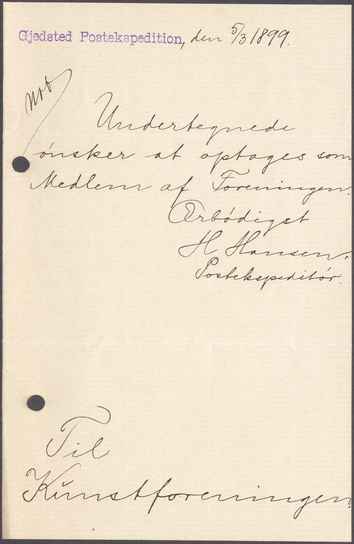 Gjedsted Postekspedition, den 5/3 1899.
Undertegnede
ønsker at optages som
Medlem af Foreningen.
Ærbödigst
H Hansen.
Postekspeditör.
Til
Kunstforeningen